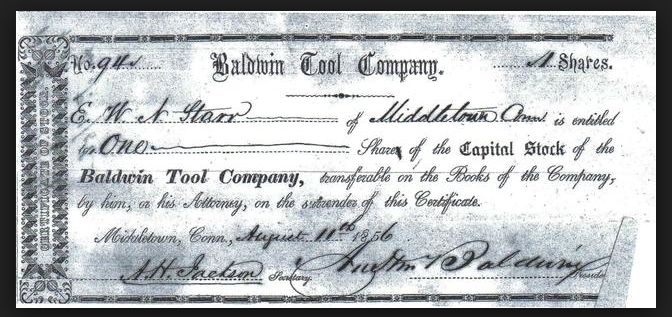 No. 94 Baldwin Tool Company. 1 Shares.
E. W. N. Starr of Middletown Conn. is entitled
to One Share of the Capital Stock of the
Baldwin Tool Company, transferable on the Books of the Company,
by him, or his Attorney, on the surrender of this Certificate.
Middletown, Conn., August 11th 1856
A. H. Jackson Secretary. Austin Baldwin President